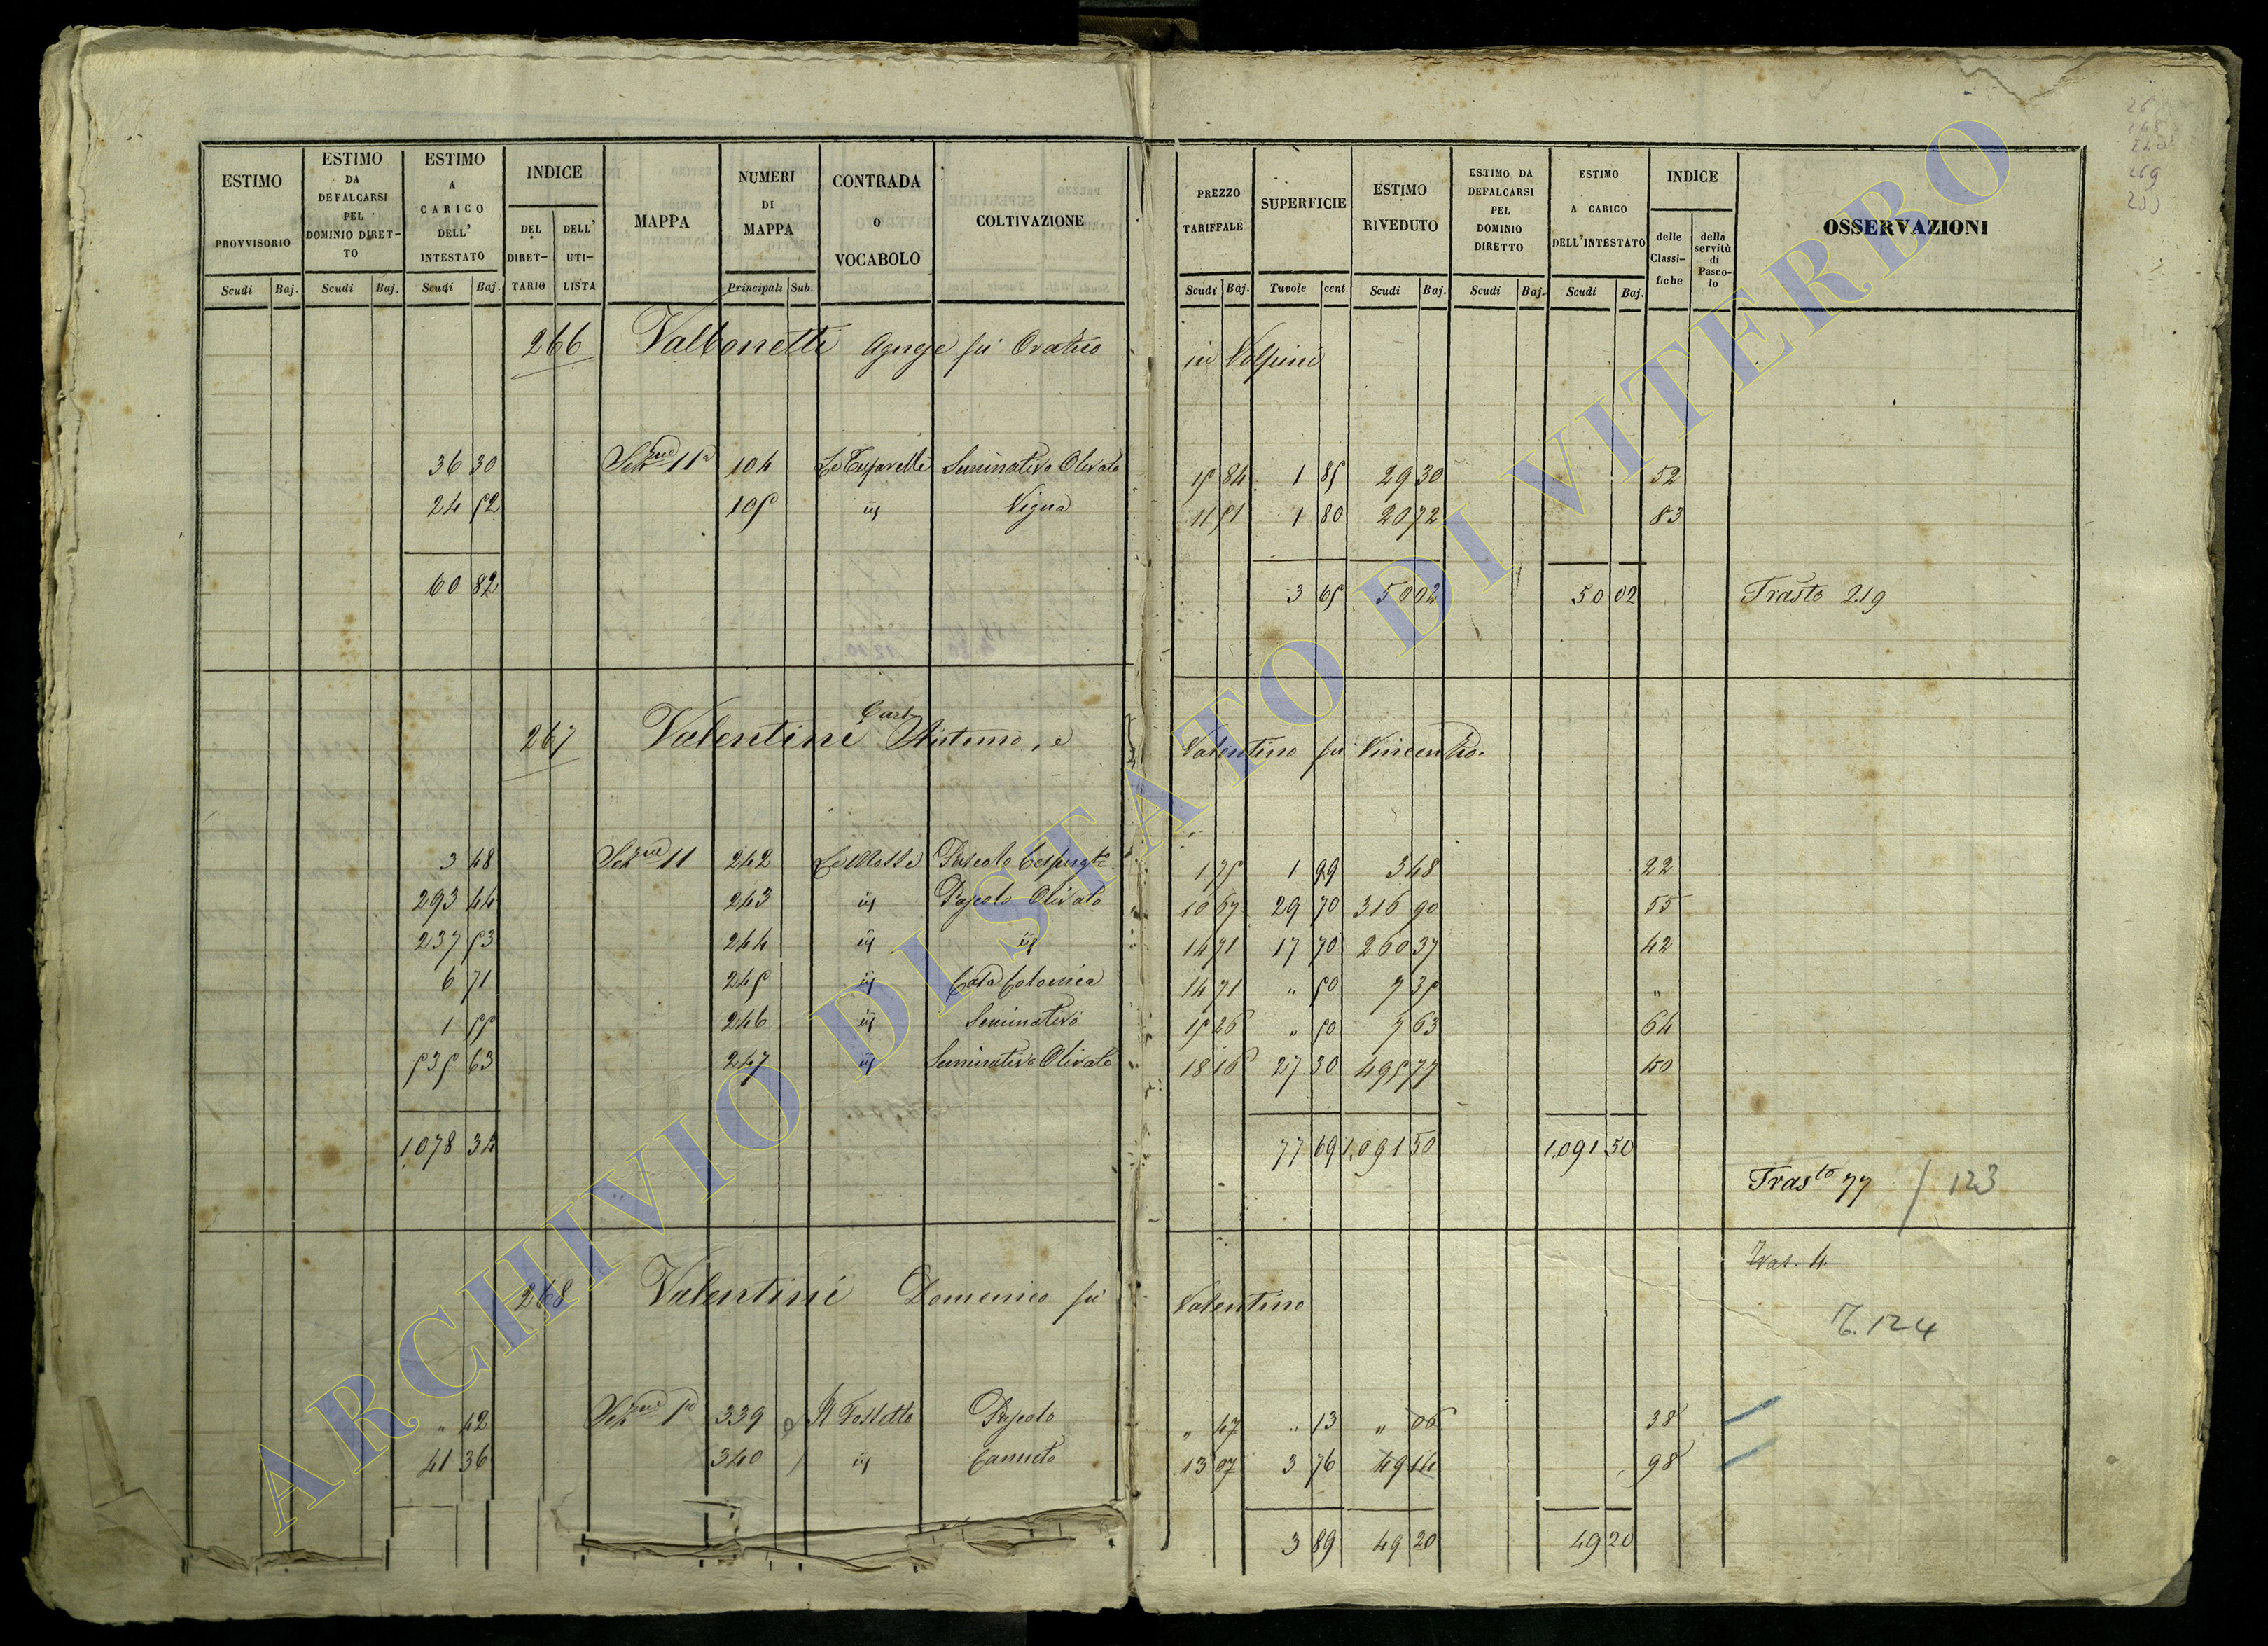 ESTIMO PROVVISORIO
Scudi Baj.
ESTIMO DA DEFALCARSI PEL DOMINIO DIRET- TO
Scudi Baj.
ESTIMO A CARICO DELL' INTESTATO
Scudi Baj.
INDICE
DEL DIRET- TARIO
DELL' UTI- LISTA
MAPPA
NUMERI DI MAPPA
Principali Sub.
CONTRADA O VOCABOLO
COLTIVAZIONE
PREZZO TARIFFALE
Scudi Baj.
SUPERFICIE
Tuvole cent.
ESTIMO RIVEDUTO
Scudi Baj.
ESTIMO DA DEFALCARSI PEL DOMINIO DIRETTO
Scudi Baj.
ESTIMO A CARICO DELL'INTESTATO
Scudi Baj.
INDICE
delle Classi- fiche
della servitù di Pasco- lo
OSSERVAZIONI
266 Valbonetti Agnese fu Oratio in Volpini
36 30 Sezne 11a 104 Seminativo Olivato 15 84 1 85 29 30 52
24 52 105 iij Vigna 11 51 1 80 20 72 83
60 82 3 65 50 02 50 02 Trasto 219
267 Valentini Antonio, e Valentino fu Vincenzo.
3 48 Sezne 11 242 Le Mosse Pascolo Cespugto 1 75 1 99 3 48 22
293 44 243 iij Pascolo Olivato 10 67 29 70 316 90 55
237 53 244 iij iij 14 71 17 70 260 37 42
6 71 245 iij Casa Colonica 14 71 " 50 7 35 "
1 55 246 iij Seminativo 15 26 " 50 7 63 64
535 63 247 iij Seminativo Olivato 18 16 27 30 495 77 50
1078 34 77 69 1,091 50 1,091 50
Trasto 77 / 123
268 Valentini Domenico fu Valentino
Tras. 4.
T. 124
" 42 Sezne 1a 339 Il Fossetto Pascolo " 47 " 13 " 06 38
41 36 340 iij Canneto 13 07 3 76 49 14 98
3 89 49 20 49 20
26
268
269
ARCHIVIO DI STATO DI VITERBO